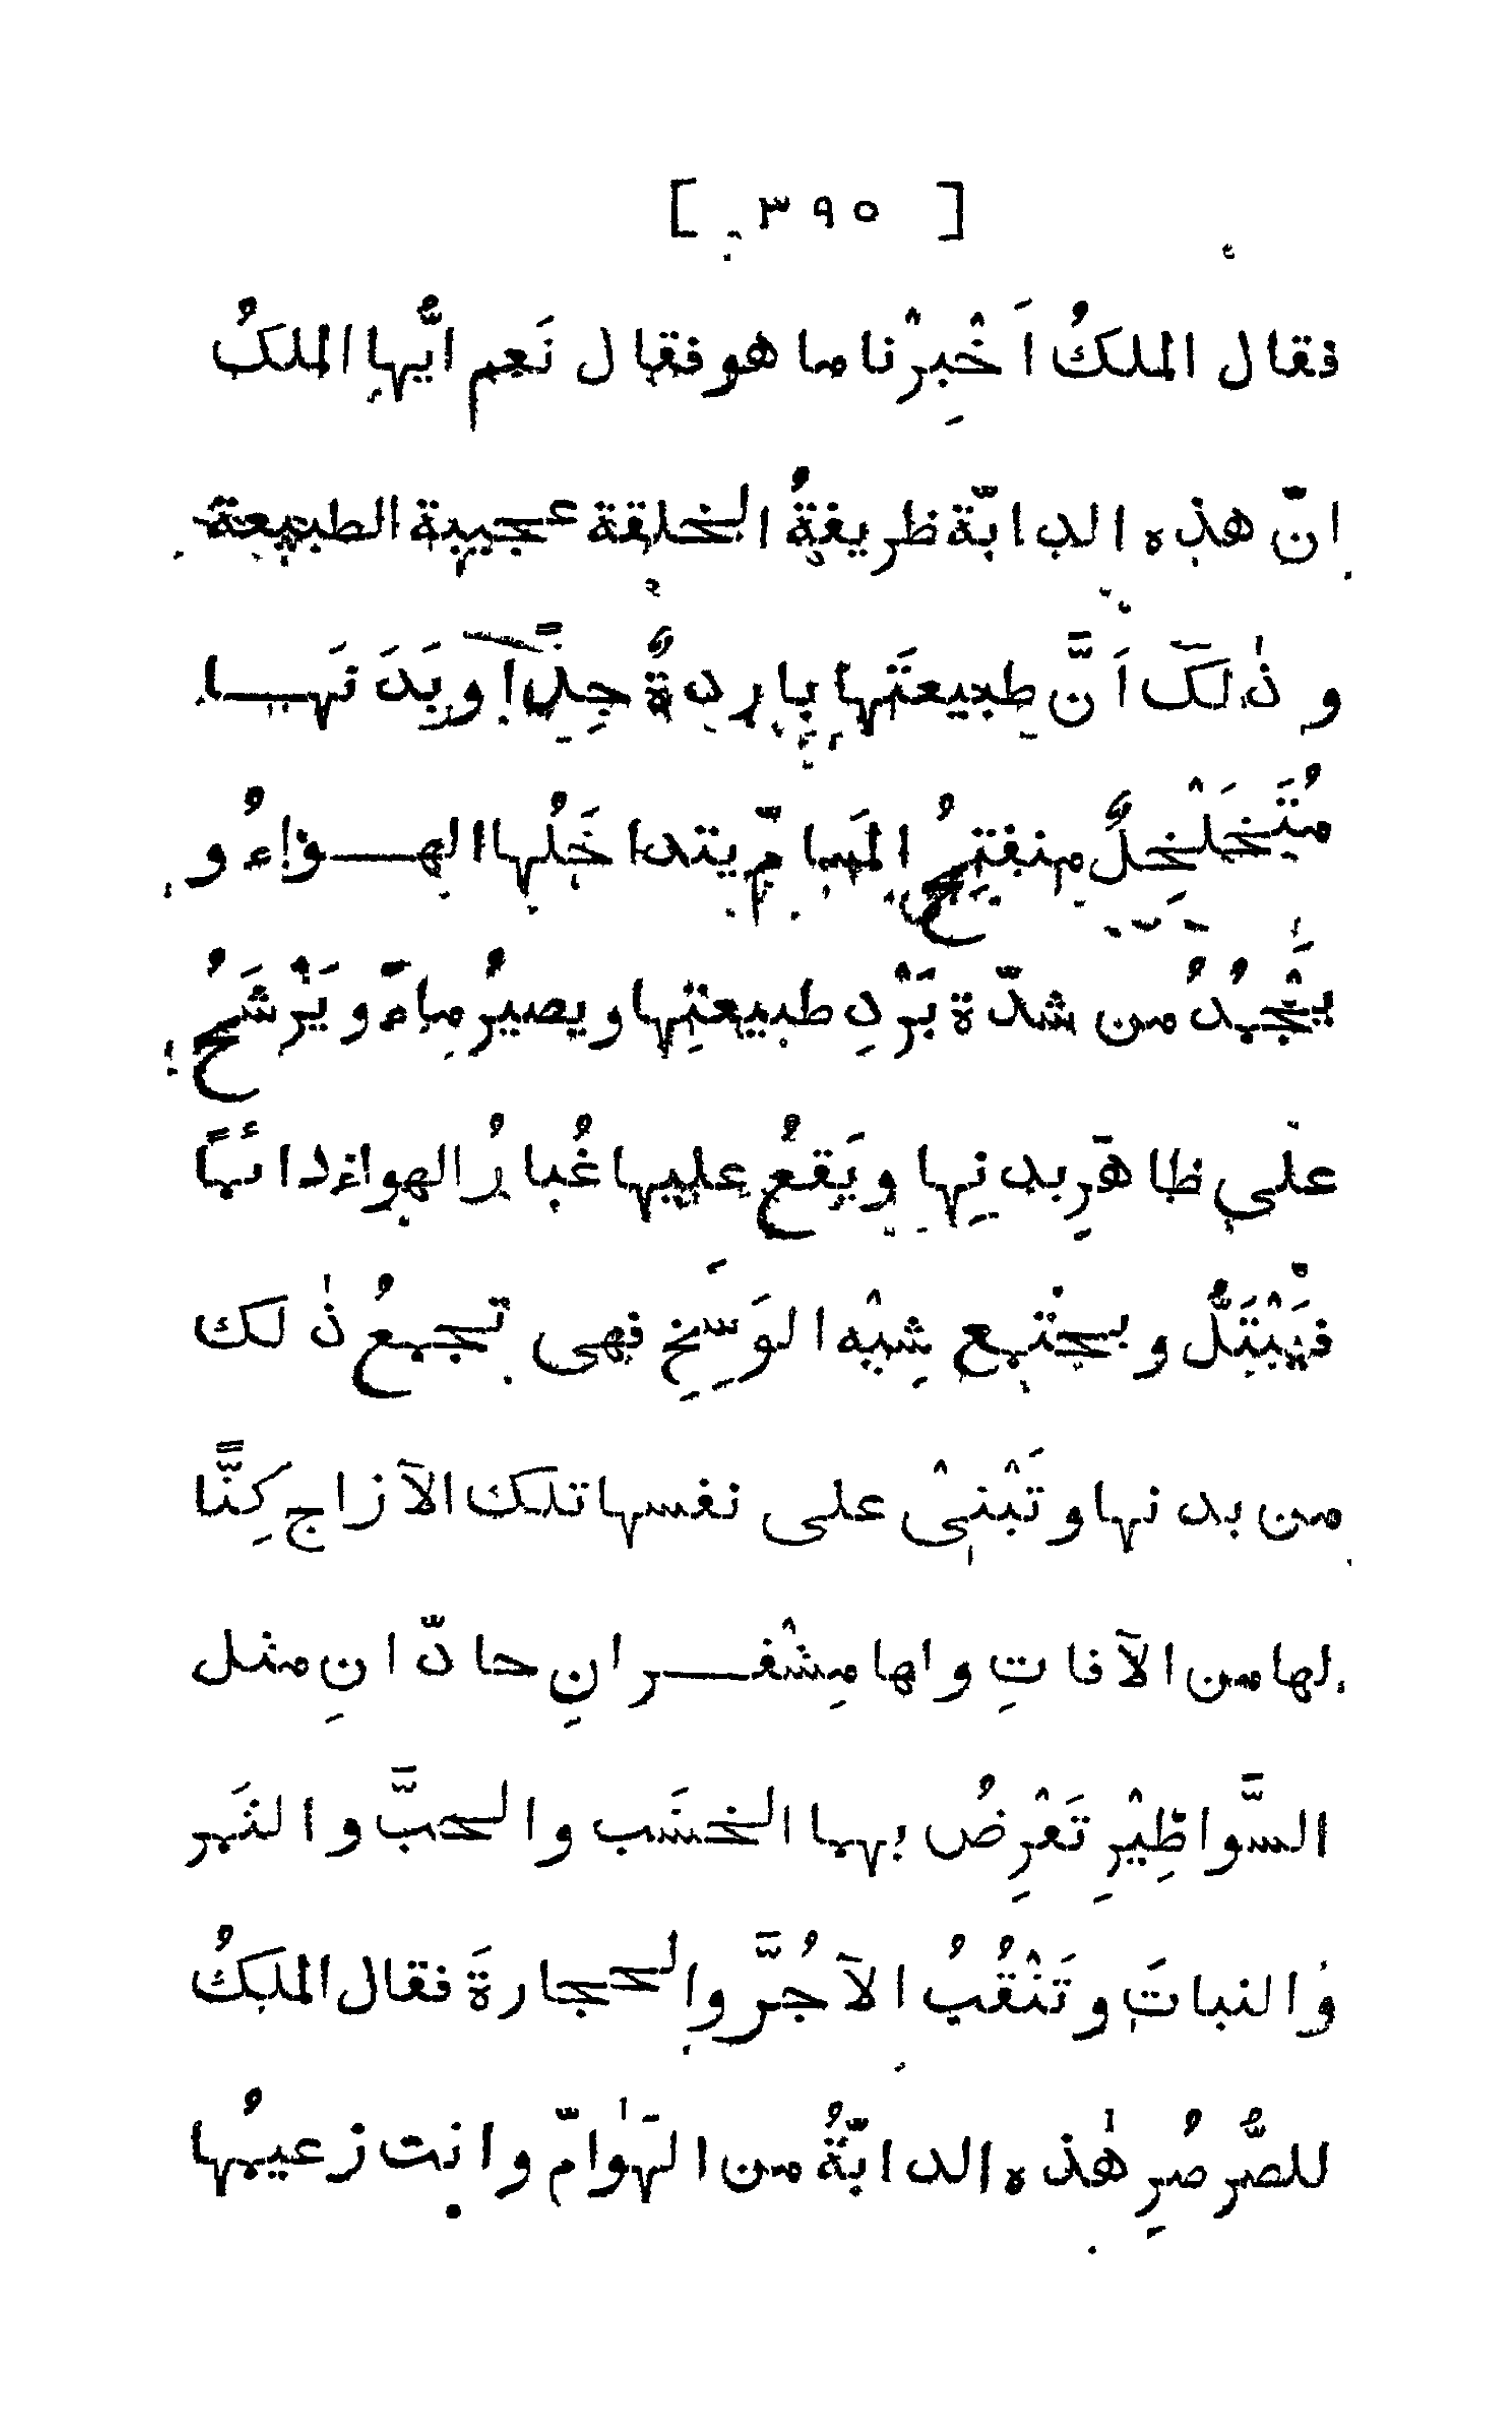 [ ٣٩٥ ]
فقال الملكُ اَخْبِرْنا ما هو فقال نَعم ايُّها الملكُ
انّ هذه الدابّة ظريفةُ الخلقة عجيبة الطبيعة
و ذٰلكَ اَنَّ طبيعتَها باردةٌ جِدًّا وبَدَنَها
مُتَخَلْخِلٌ منفتِحُ المَسامّ يتداخَلُها الهواءُ و
يَجْمُدُ من شدّة بَرْدِ طبيعتِها ويصيرُ ماءً ويَرْشَحُ
على ظاهرِ بدنِها ويَقعُ عليها غُبارُ الهواء دائمًا
فيَبْتَلُّ ويجتمع شِبْه الوَسَخِ فهى تجمعُ ذٰلك
من بدنها وتَبْنىْ على نفسها تلك الآزاج كِنًّا
لها من الآفاتِ ولها مِشْفرانِ حادّانِ مثل
السَّواطِيْرِ تَعْرِضُ بهما الخشَب والحبَّ والثَمر
والنباتَ وتَنْقُبُ الآجُرَّ والحجارةَ فقال الملكُ
للصُّرصُرِ هٰذه الدابّةُ من الهَوامّ وانت زعيمُها